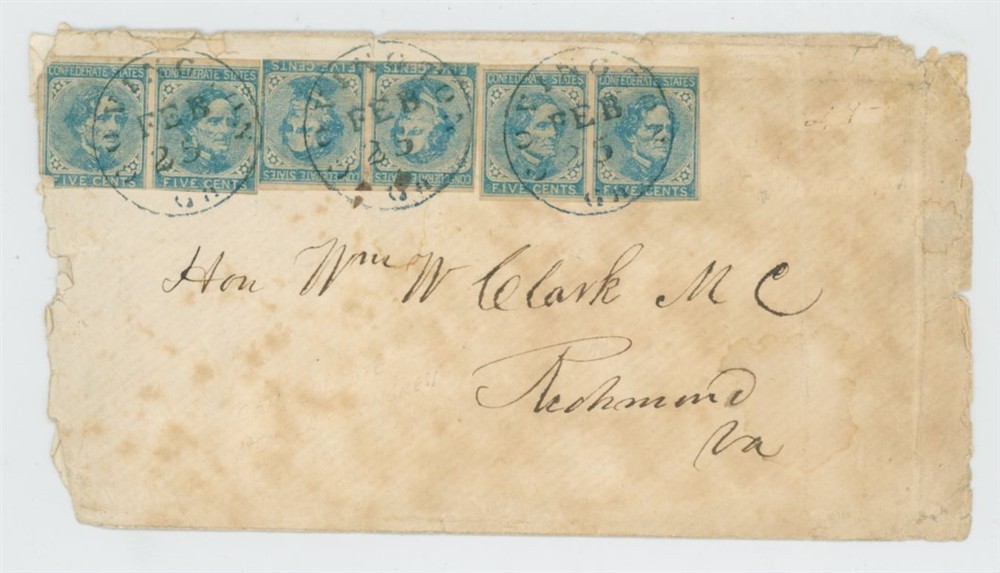 CONFEDERATE STATES CONFEDERATE STATES FIVE CENTS FIVE CENTS
FIVE CENTS FIVE CENTS CONFEDERATE STATES CONFEDERATE STATES FIVE CENTS FIVE CENTS
COVINGTON GA. COVINGTON GA. COVINGTON GA.
FEB FEB FEB
25 25 25
Hon Wm W Clark M C
Richmond
Va